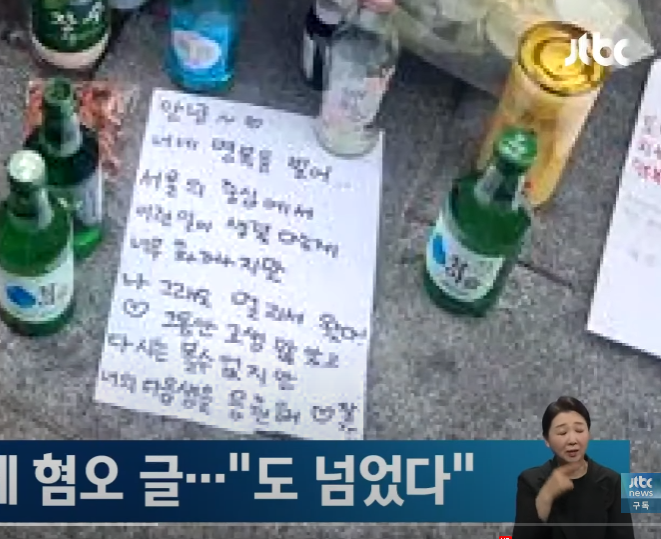 jtbc
안녕~♡
너네 명복을 빌어...
서울의 중심에서
이런일이 생겼다는게
너무 화가나지만
나 그래도 멀리서 왔어
♡ 그동안 고생 많았고
다시는 볼수 없지만
너의 다음생을 응원해 ♡ 잘
혐오 글…"도 넘었다"
jtbc
news
구독